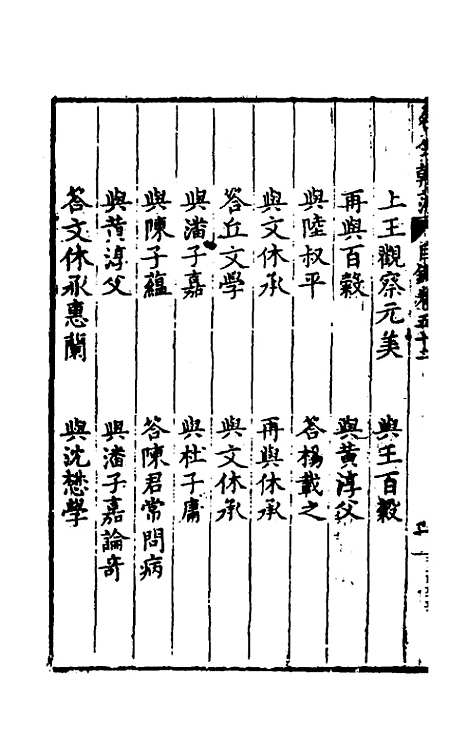 上王觀察元美　與王百穀
再與百穀　與黃淳父
與陸叔平　答楊載之
與文休承　再與休承
答丘文學　與文休承
與潘子嘉　與杜子庸
與陳子蘊　答陳君常問病
與黃淳父　與潘子嘉論奇
答文休承惠蘭　與沈懋學